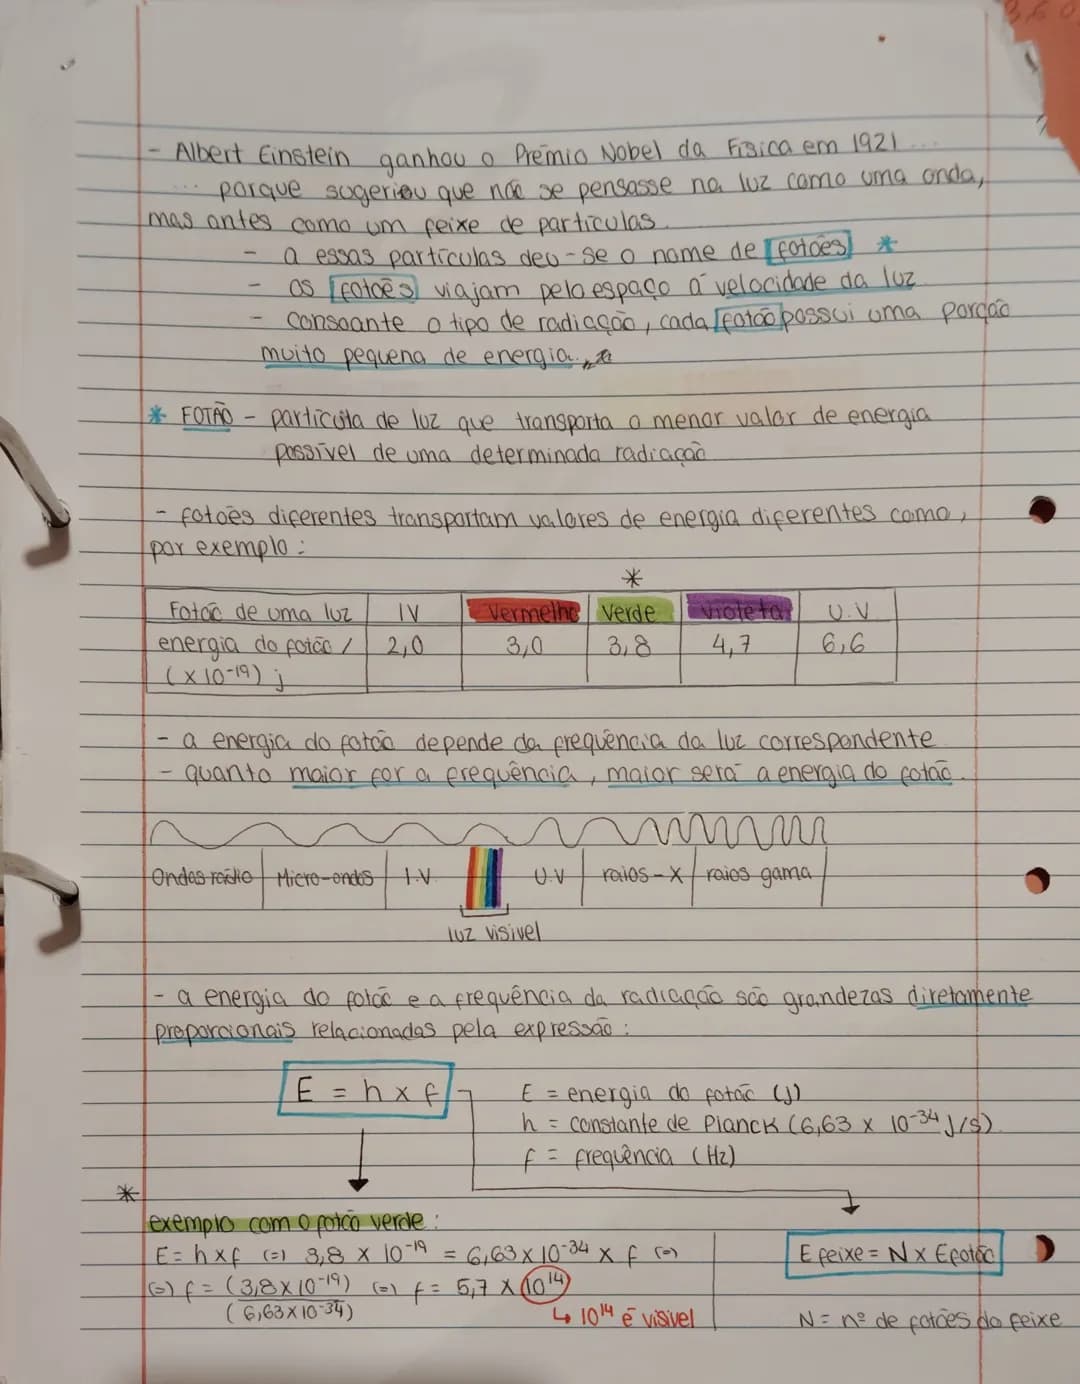 - Albert Einstein ganhou o Prémio Nobel da Física em 1921 ...
... porque sugeriou que não se pensasse na luz como uma onda,
mas antes como um feixe de partículas.
- a essas partículas deu-se o nome de fotões *
- os fotões viajam pelo espaço à velocidade da luz
- consoante o tipo de radiação, cada fotão possui uma porção
muito pequena de energia.
* FOTÃO - partícula de luz que transporta o menor valor de energia
possível de uma determinada radiação
- fotões diferentes transportam valores de energia diferentes como,
por exemplo:
*
Fotão de uma luz | IV | Vermelho | Verde | Violeta | U.V
energia do fotão / | 2,0 | 3,0 | 3,8 | 4,7 | 6,6
(x 10⁻¹⁹) j
- a energia do fotão depende da frequência da luz correspondente
- quanto maior for a frequência, maior será a energia do fotão.
Ondas rádio | Micro-ondas | I.V. | U.V | raios-X | raios gama
luz visível
- a energia do fotão e a frequência da radiação são grandezas diretamente
proporcionais relacionadas pela expressão:
E = h x f
E = energia do fotão (J)
h = constante de Planck (6,63 x 10⁻³⁴ J/s)
f = frequência (Hz)
*
exemplo com o fotão verde:
E = h x f (=) 3,8 x 10⁻¹⁹ = 6,63 x 10⁻³⁴ x f (=)
(=) f = (3,8 x 10⁻¹⁹) (=) f = 5,7 x 10¹⁴
(6,63 x 10⁻³⁴)
↳ 10¹⁴ é visível
E feixe = N x Efotão
N = nº de fotões do feixe